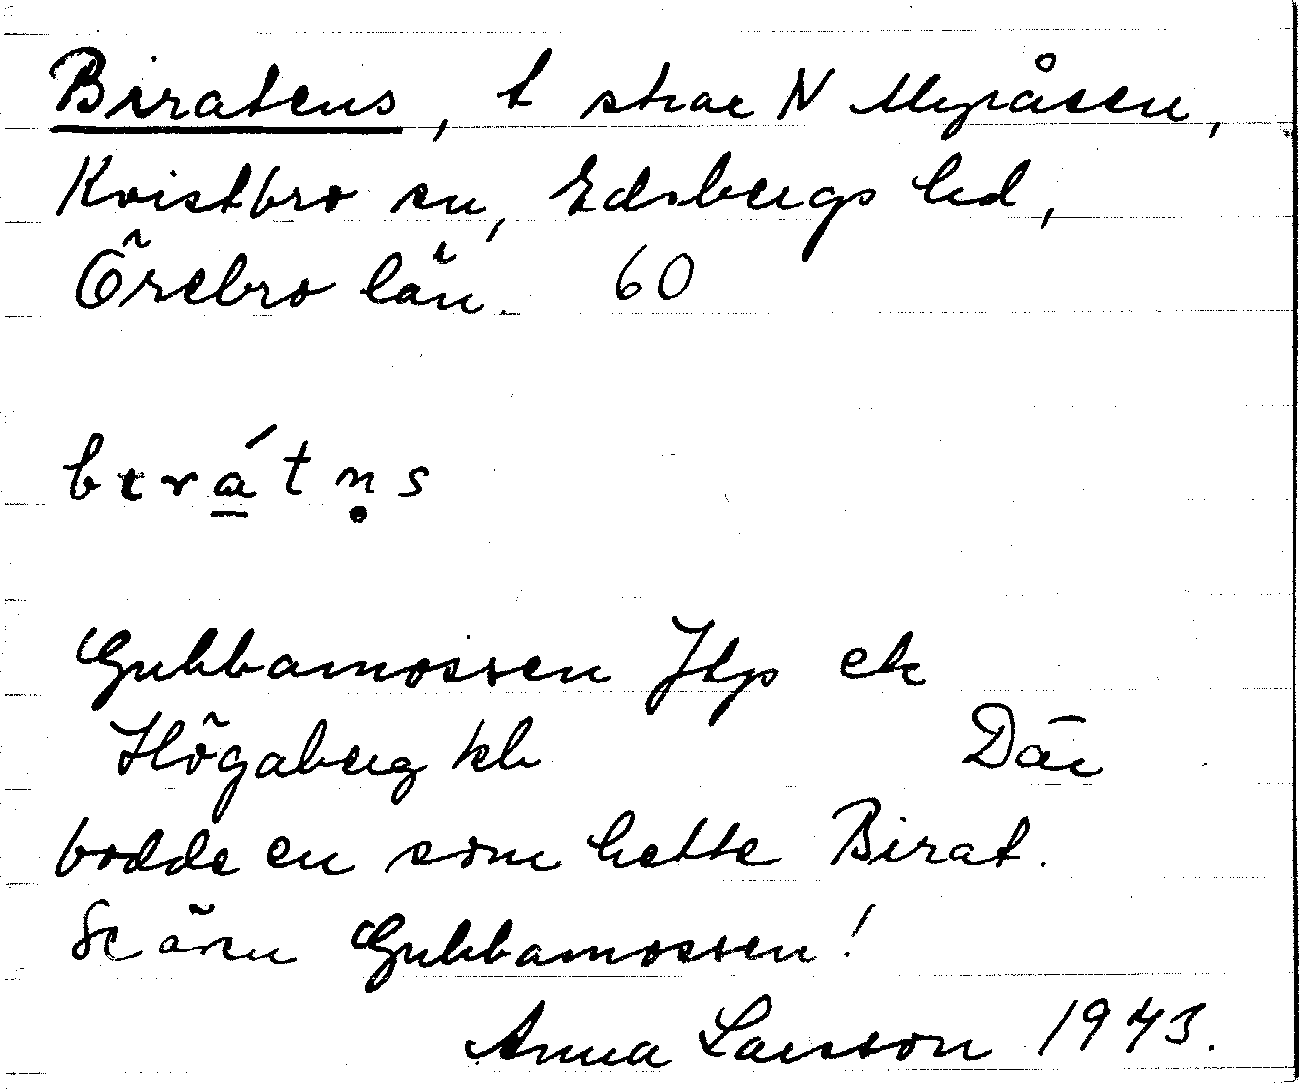 Biratens, t strax N Myråsen,
Kvistbro sn, Edsbergs hd,
Örebro län. 60
bırá̱tṇs
Gubbamossen Jtp ek
Högaberg kb Där
bodde en som hette Birat.
Se även Gubbamossen!
Anna Larsson 1943.